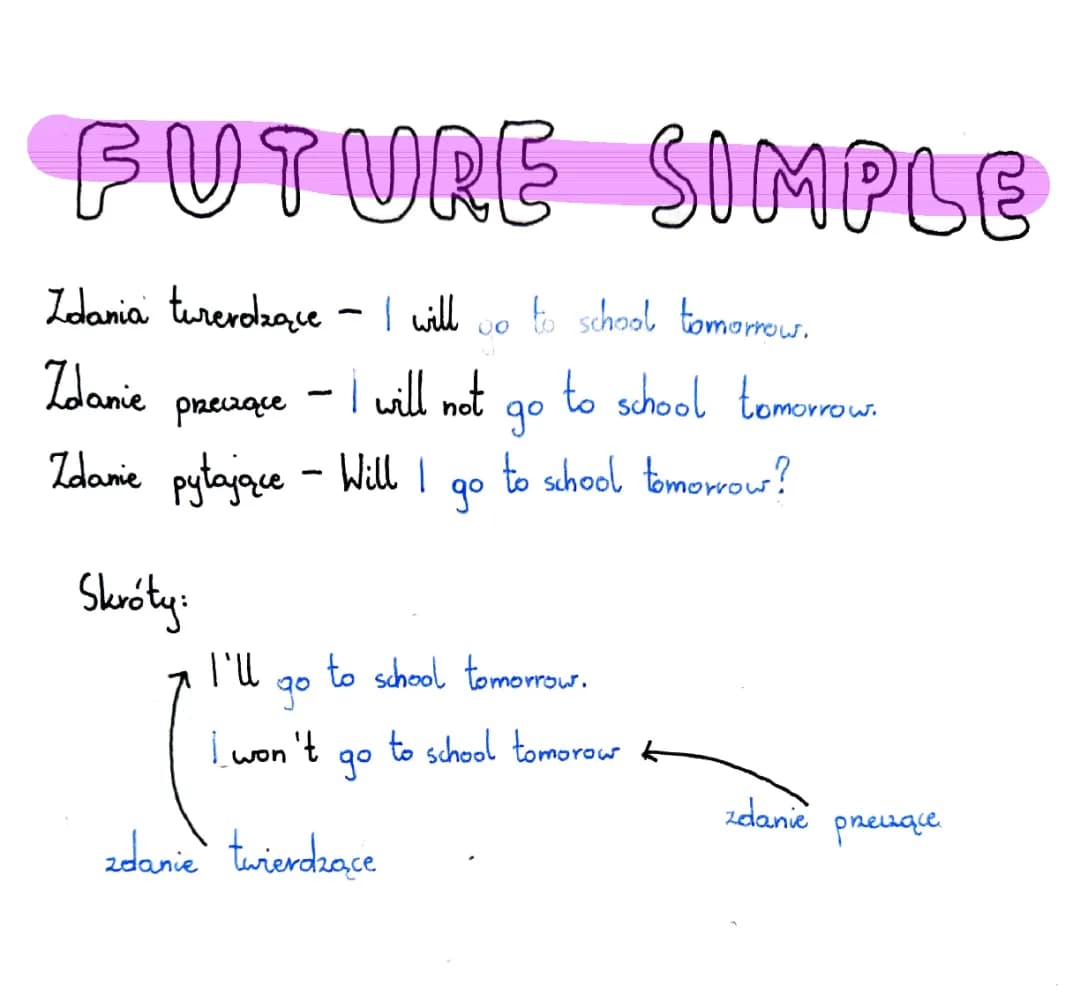 FUTURE SIMPLE
Zdania twierdzące – I will go to school tomorrow.
Zdanie przeczące – I will not go to school tomorrow.
Zdanie pytające – Will I go to school tomorrow?
Skróty:
I'll go to school tomorrow.
I won't go to school tomorow
zdanie przeczące
zdanie twierdzące